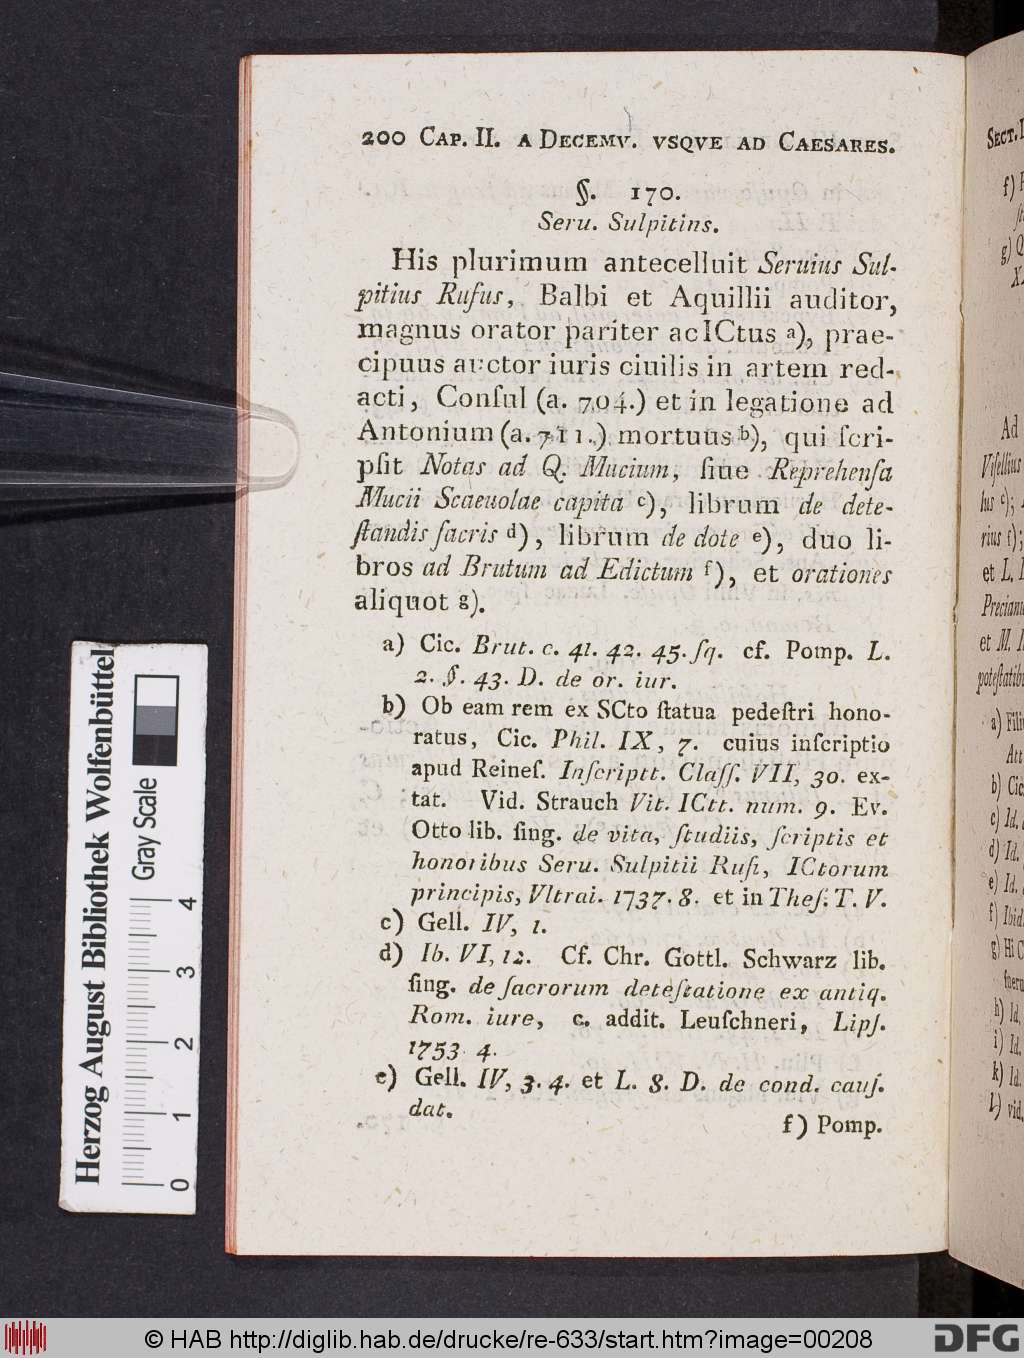 200 CAP. II. A DECEMV. VSQVE AD CAESARES.
§. 170.
Seru. Sulpitins.
His plurimum antecelluit Seruius Sul-
pitius Rufus, Balbi et Aquillii auditor,
magnus orator pariter ac ICtus a), prae-
cipuus auctor iuris ciuilis in artem red-
acti, Conſul (a. 704.) et in legatione ad
Antonium (a. 711.) mortuus b), qui ſcri-
pſit Notas ad Q. Mucium, ſiue Reprehenſa
Mucii Scaeuolae capita c), librum de dete-
ſtandis ſacris d), librum de dote e), duo li-
bros ad Brutum ad Edictum f), et orationes
aliquot g).
a) Cic. Brut. c. 41. 42. 45. ſq. cf. Pomp. L.
2. §. 43. D. de or. iur.
b) Ob eam rem ex SCto ſtatua pedeſtri hono-
ratus, Cic. Phil. IX, 7. cuius inſcriptio
apud Reineſ. Inſcriptt. Claſſ. VII, 30. ex-
tat. Vid. Strauch Vit. ICtt. num. 9. Ev.
Otto lib. ſing. de vita, ſtudiis, ſcriptis et
honoribus Seru. Sulpitii Rufi, ICtorum
principis, Vltrai. 1737. 8. et in Theſ. T. V.
c) Gell. IV, 1.
d) Ib. VI, 12. Cf. Chr. Gottl. Schwarz lib.
ſing. de ſacrorum deteſtatione ex antiq.
Rom. iure, c. addit. Leuſchneri, Lipſ.
1753. 4.
e) Gell. IV, 3. 4. et L. 8. D. de cond. cauſ.
dat.
f) Pomp.
SECT.
f)
g) Q
Ad
Viſellius
lus c);
rius f);
et L.
et M.
a) Filiu
Att
b) Cic.
c) Id.
d) Id.
e) Id.
f) Ibid
g) Hi C
fueru
h) Id.
i) Id.
k) Id.
l) vid.
Herzog August Bibliothek Wolfenbüttel
Gray Scale
0 1 2 3 4
© HAB http://diglib.hab.de/drucke/re-633/start.htm?image=00208
DFG